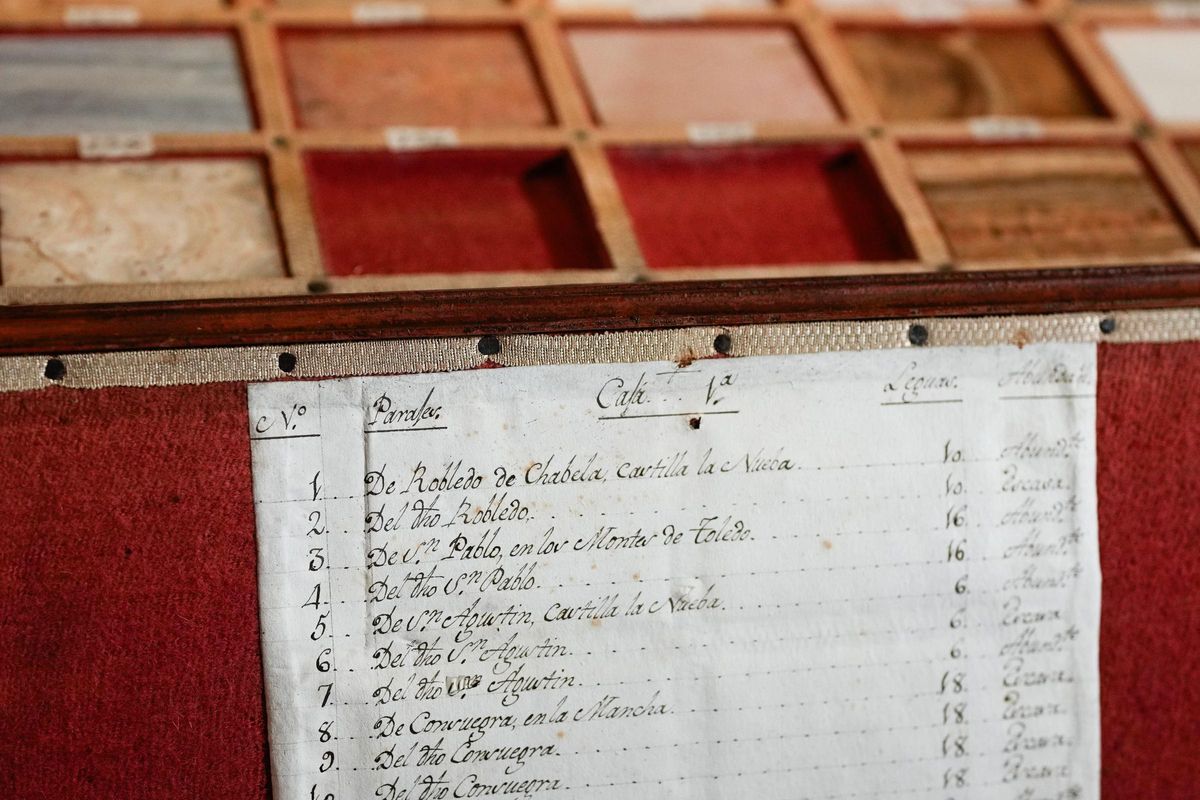 N.º Parajes. Caja 1.ª Leguas.
1 De Robledo de Chabela, Castilla la Nueba. 10. Abund.te
2. Del dho Robledo. 10. Escasa.
3 De S.n Pablo, en los Montes de Toledo. 16. Abund.te
4. Del dho S.n Pablo. 16. Abund.te
5 De S.n Agustin, Castilla la Nueba. 6. Abund.te
6. Del dho S.n Agustin. 6. Escasa.
7 Del dho S.n Agustin. 6. Abund.te
8. De Consuegra, en la Mancha. 18. Escasa.
9. Del dho Consuegra. 18. Escasa.
10 Del dho Consuegra. 18. Escasa.